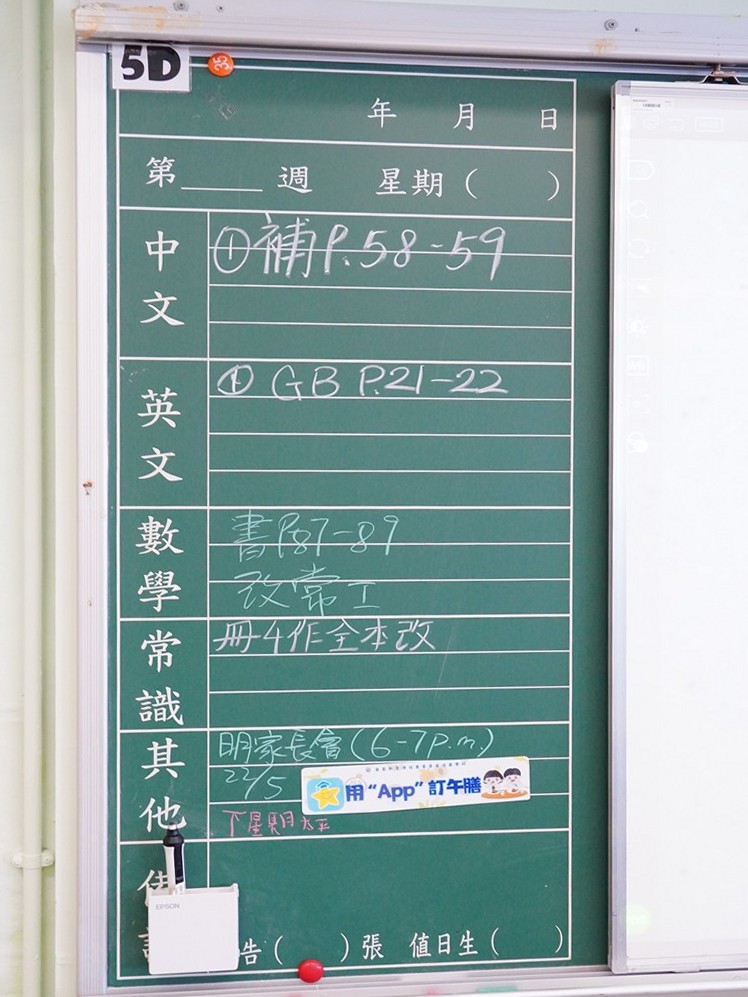 5D
35
年 月 日
第____週 星期( )
中文
①補P.58-59
英文
① GB P.21-22
數學
書P87-89
改常工
常識
冊4作全本改
其他
明家長會(6-7p.m.)
22/5
用“App”訂午膳
下星期
EPSON
告( )張 值日生( )